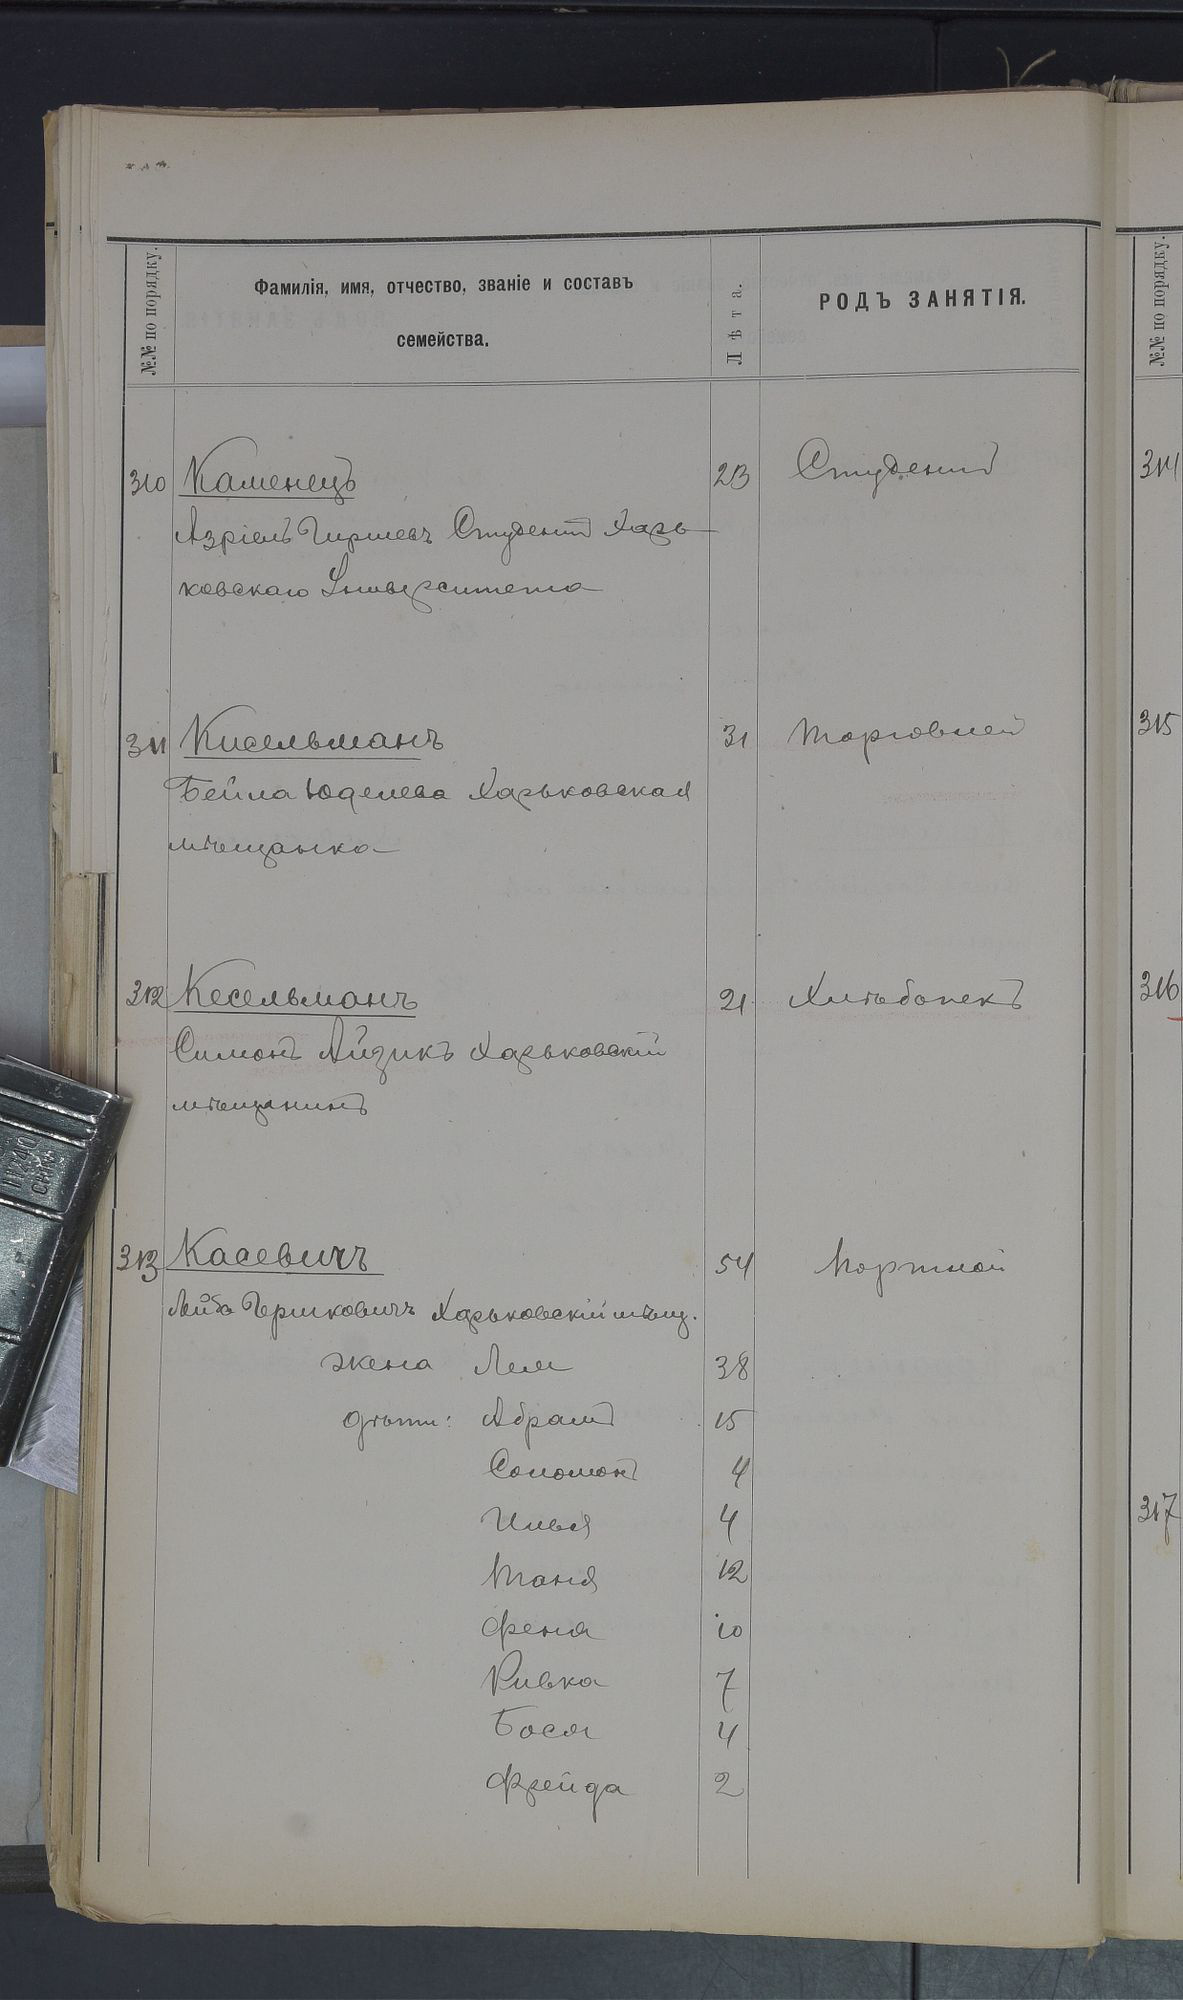 №№ по порядку.
Фамилія, имя, отчество, званіе и составъ
семейства.
Лѣта.
РОДЪ ЗАНЯТІЯ.
№№ по порядку.
310 Каменецъ 23 Студентъ
Азріель Гиршевъ Студентъ Харь-
ковскаго Университета
311 Кисельманъ 31 Торговлей
Бейла Юделева Харьковская
мѣщанка
312 Кесельманъ 21 Хлѣбопекъ
Симонъ Айзикъ Харьковскій
мѣщанинъ
313 Касевичъ 54 Портной
Лейба Гершковичъ Харьковскій мѣщ.
жена Лея 38
дѣти: Абрамъ 15
Соломонъ 4
Илья 4
Таня 12
Феня 10
Ривка 7
Бася 4
Фрейда 2
314
315
316
317